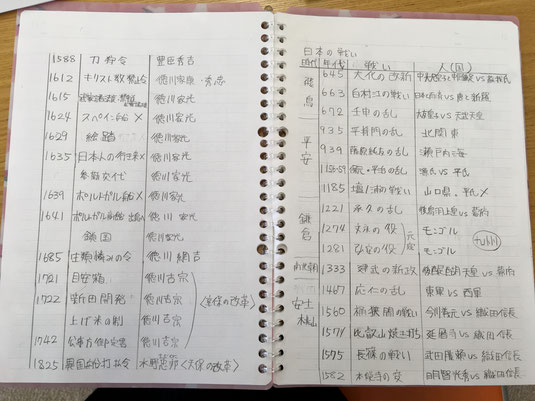 1588 刀狩令 豊臣秀吉
1612 キリスト教禁止 徳川家康・秀忠
1615 徳川家光
1624 スペイン船× 徳川家光
1629 絵踏 徳川家光
1635 日本人の 徳川家光
参勤交代 徳川家光
1639 ポルトガル船× 徳川家光
1641 徳川家光
鎖国 徳川家光
1685 生類憐みの令 徳川綱吉
1721 目安箱 徳川吉宗
1722 新田開発 徳川吉宗 〈享保の改革〉
上げ米の制 徳川吉宗
1742 公事方御定書 徳川吉宗
1825 異国船打払令 水野忠邦〈天保の改革〉
日本の戦い
時代 年代 戦い 人(国)
飛鳥 645 大化の改新 中大兄皇子と中臣鎌足vs蘇我氏
663 白村江の戦い 日本と百済vs唐と新羅
672 壬申の乱 大友皇子vs天武天皇
平安 935 平将門の乱 北関東
939 藤原純友の乱 瀬戸内海
1156・59 保元・平治の乱 源氏vs平氏
1185 壇ノ浦の戦い 山口県・平氏×
鎌倉 1221 承久の乱 後鳥羽上皇vs幕府
1274 文永の役 元寇 モンゴル
1281 弘安の役 モンゴル
南北朝 1333 建武の新政 後醍醐天皇vs幕府
1467 応仁の乱 東軍vs西軍
安土桃山 1560 桶狭間の戦い 今川義元vs織田信長
1571 比叡山焼き打ち 延暦寺vs織田信長
1575 長篠の戦い 武田勝頼vs織田信長
1582 本能寺の変 明智光秀vs織田信長